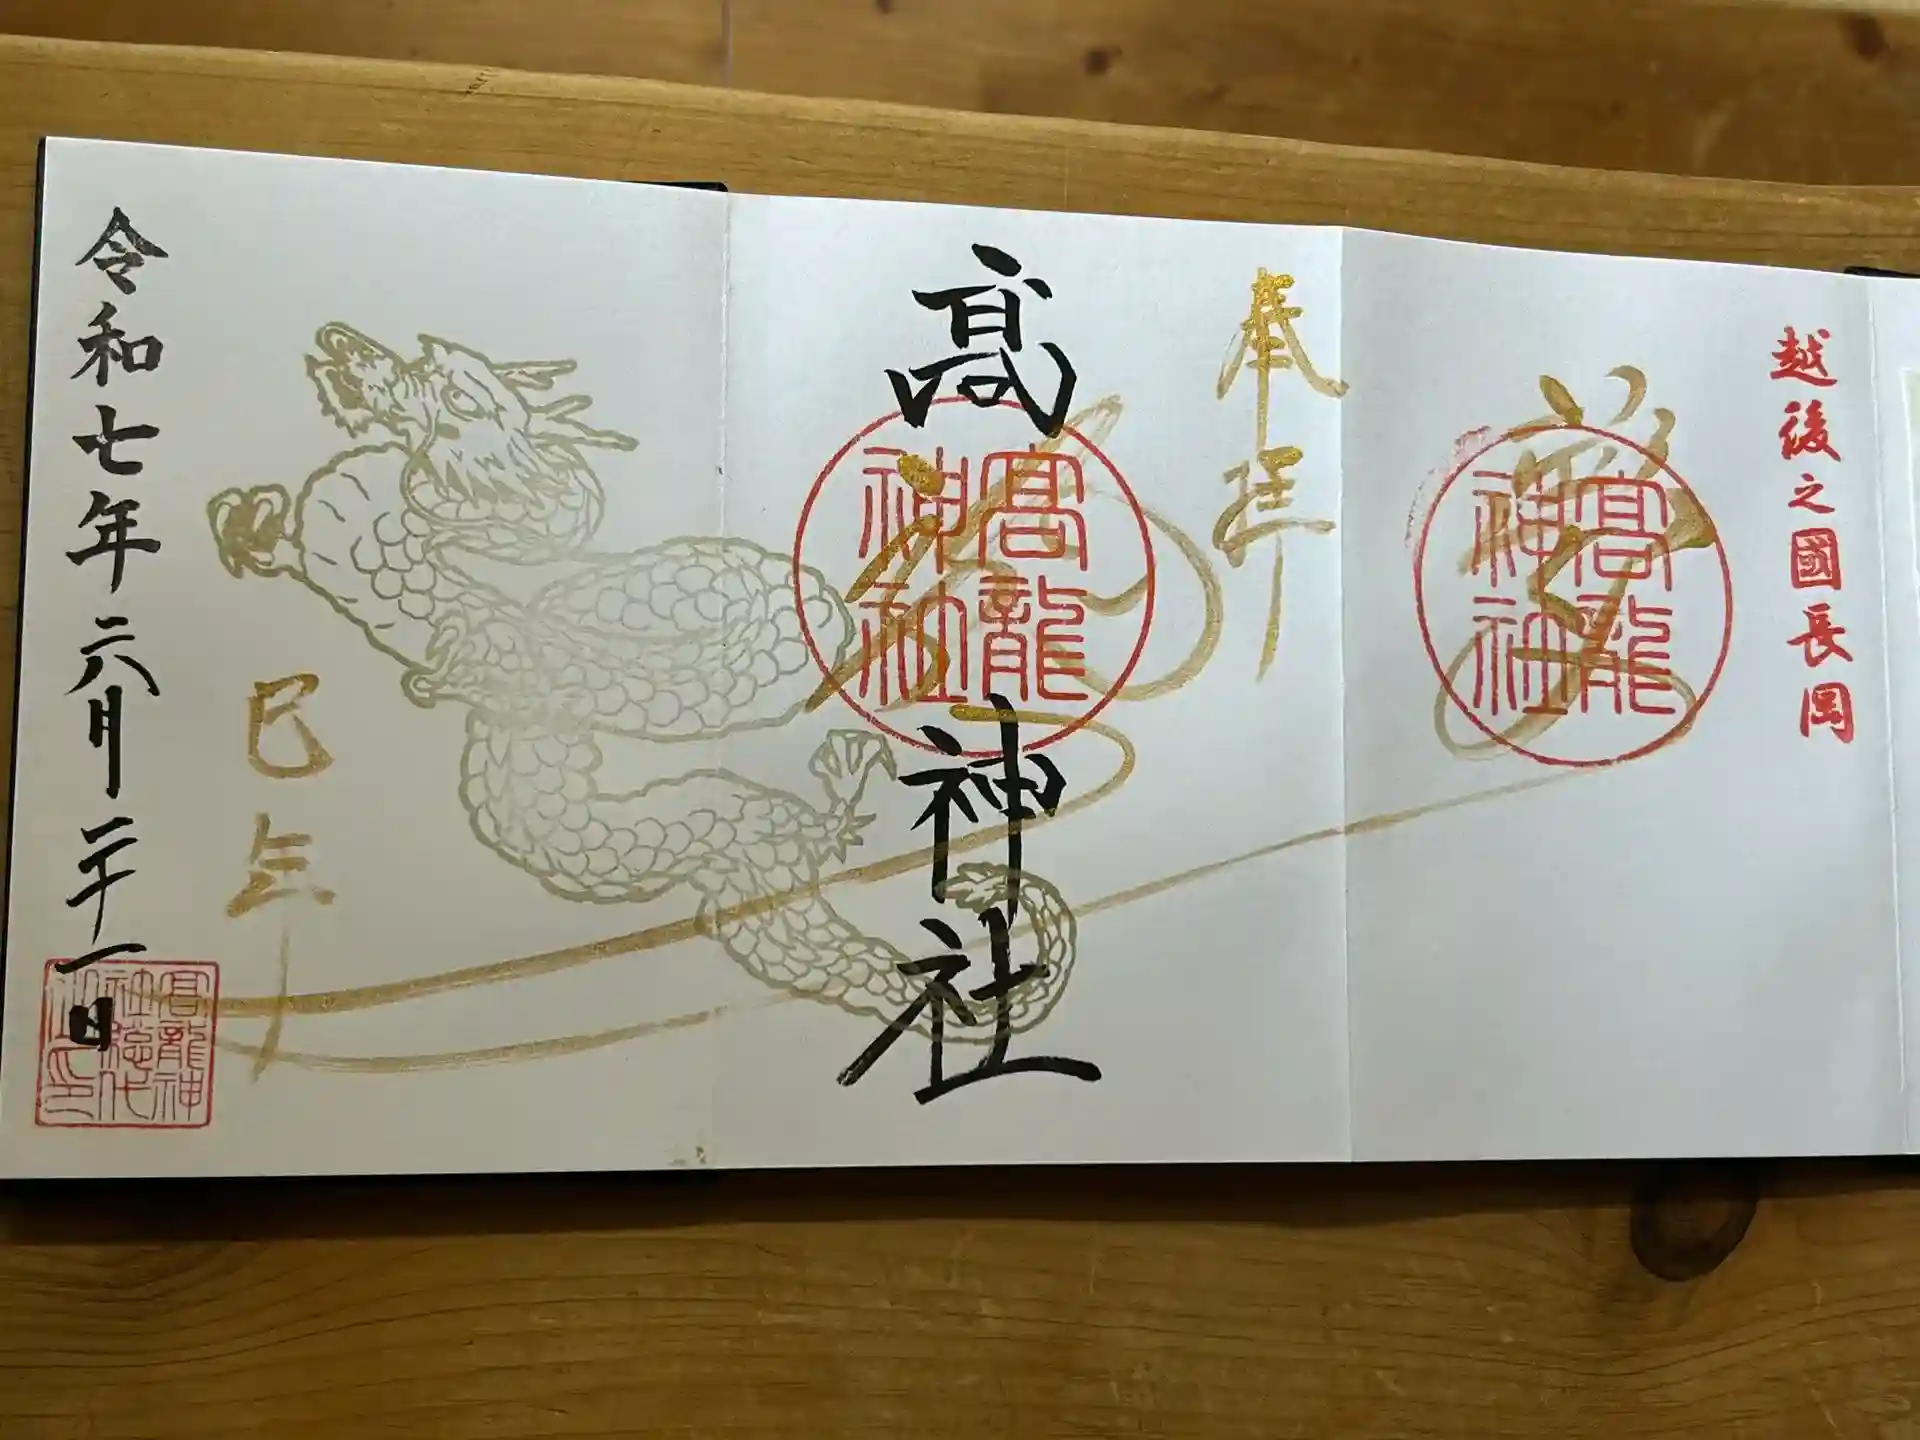 越後之國長岡
髙龍神社
奉拝
髙
神社
髙龍神社
巳年
令和七年六月二十一日
髙龍神社総代之印